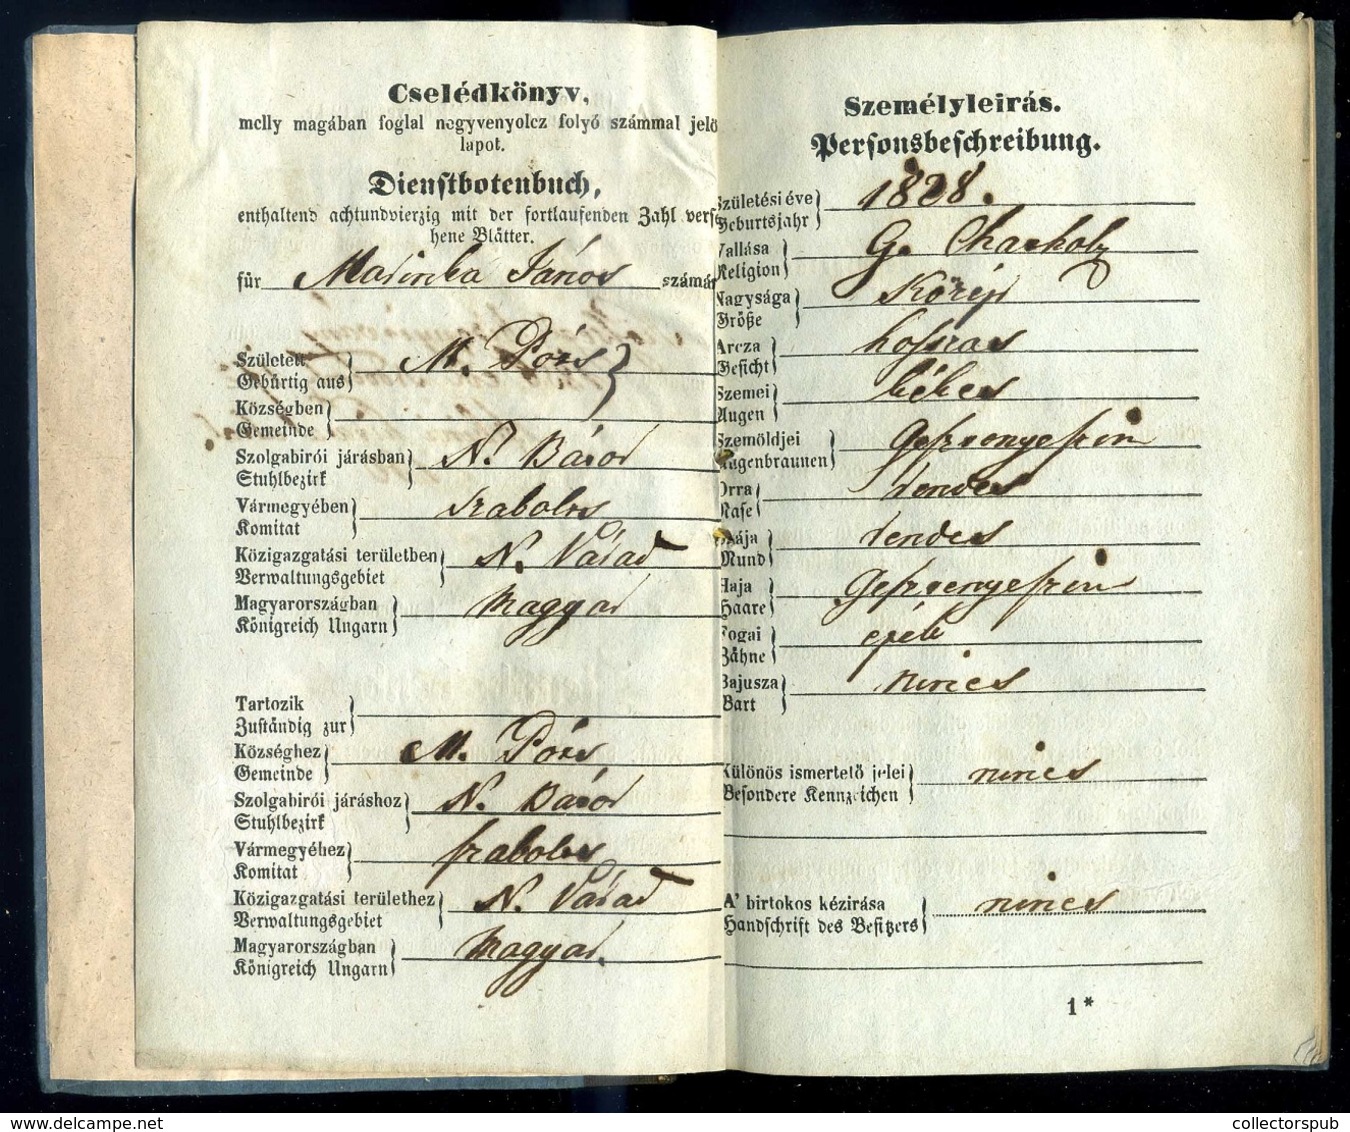 Cselédkönyv,
melly magában foglal negyvenyolcz folyó számmal jelö
lapot.
Dienstbotenbuch,
enthaltend achtundvierzig mit der fortlaufenden Zahl verse
hene Blätter.
für János számár
Született M. Pócs
Gebürtig aus
Községben
Gemeinde
Szolgabirói járásban N. Bátor
Stuhlbezirk
Vármegyében szabolcs
Komitat
Közigazgatási területben N. Várad
Verwaltungsgebiet
Magyarországban Magyar
Königreich Ungarn
Tartozik
Zuständig zur
Községhez M. Pócs
Gemeinde
Szolgabirói járáshoz N. Bátor
Stuhlbezirk
Vármegyéhez szabolcs
Komitat
Közigazgatási területhez N. Várad
Verwaltungsgebiet
Magyarországban Magyar.
Königreich Ungarn
Személyleirás.
Personsbeschreibung.
Születési éve 1828.
Geburtsjahr
Vallása G.
Religion
Nagysága Közép
Größe
Arcza hosszas
Gesicht
Szemei kékes
Augen
Szemöldjei Gesztenyeszin
Augenbraunen
Orra rendes
Nase
Szája rendes
Mund
Haja Gesztenyeszin
Haare
Fogai épek
Zähne
Bajusza nincs
Bart
Különös ismertető jelei nincs
Besondere Kennzeichen
A' birtokos kézirása nincs
Handschrift des Besitzers
1*
collectorspub